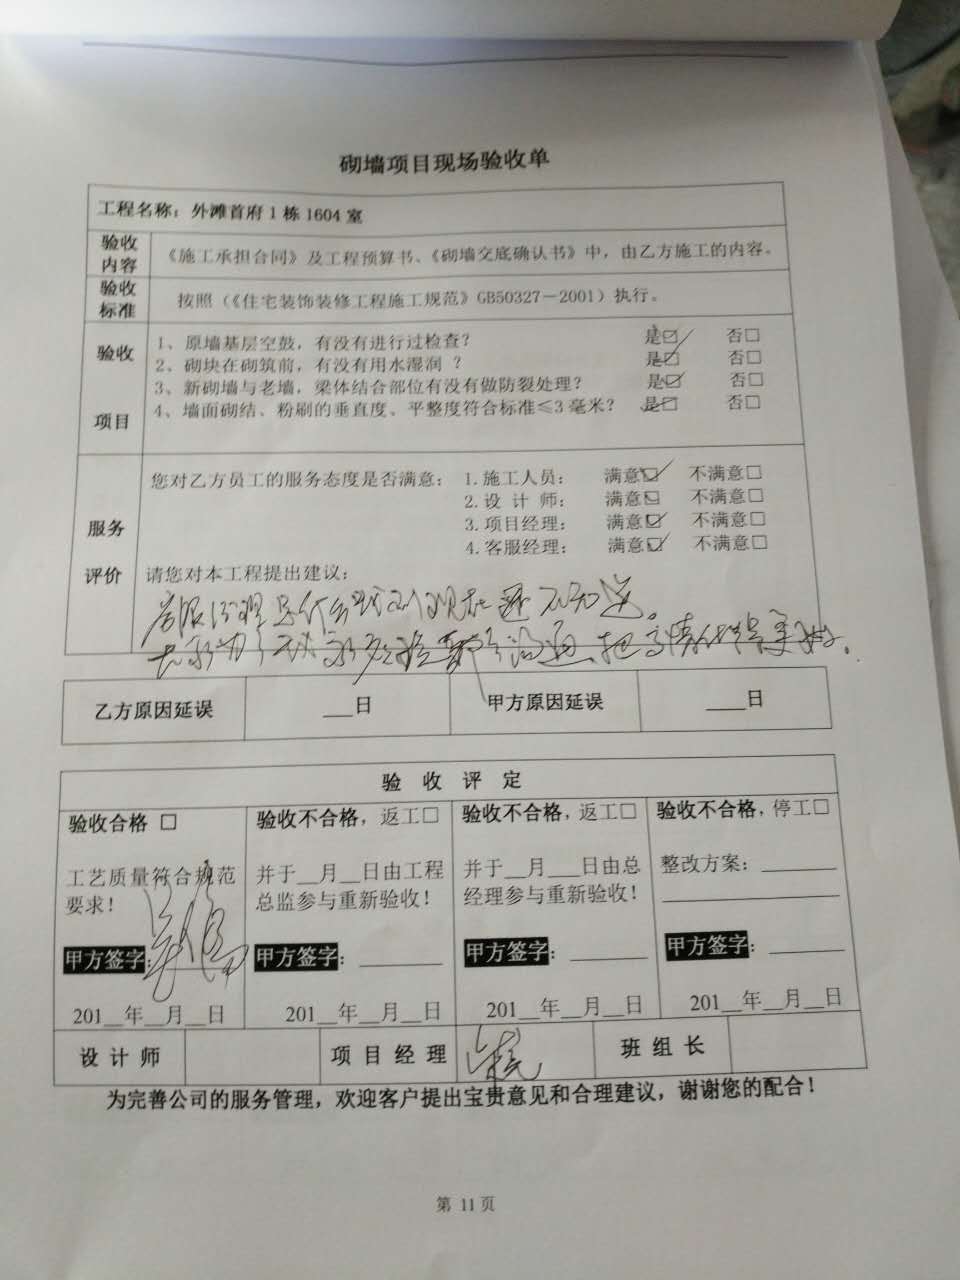 砌墙项目现场验收单
工程名称：外滩首府1栋1604室
验收内容
《施工承担合同》及工程预算书、《砌墙交底确认书》中，由乙方施工的内容。
验收标准
按照（《住宅装饰装修工程施工规范》GB50327-2001）执行。
验收项目
1、原墙基层空鼓，有没有进行过检查？ 是☑ 否□
2、砌块在砌筑前，有没有用水湿润？ 是☑ 否□
3、新砌墙与老墙，梁体结合部位有没有做防裂处理？ 是☑ 否□
4、墙面砌结、粉刷的垂直度、平整度符合标准≤3毫米？ 是☑ 否□
服务评价
您对乙方员工的服务态度是否满意： 1.施工人员： 满意☑ 不满意□
2.设 计 师： 满意☑ 不满意□
3.项目经理： 满意☑ 不满意□
4.客服经理： 满意☑ 不满意□
请您对本工程提出建议：
乙方原因延误 ___日 甲方原因延误 ____日
验 收 评 定
验收合格 □
工艺质量符合规范
要求！
甲方签字：
201__年__月__日
验收不合格，返工□
并于__月__日由工程
总监参与重新验收！
甲方签字：________
201__年__月__日
验收不合格，返工□
并于__月___日由总
经理参与重新验收！
甲方签字：________
201__年__月__日
验收不合格，停工□
整改方案：________
甲方签字：________
201__年__月__日
设 计 师 项 目 经 理 班 组 长
为完善公司的服务管理，欢迎客户提出宝贵意见和合理建议，谢谢您的配合！
第 11 页